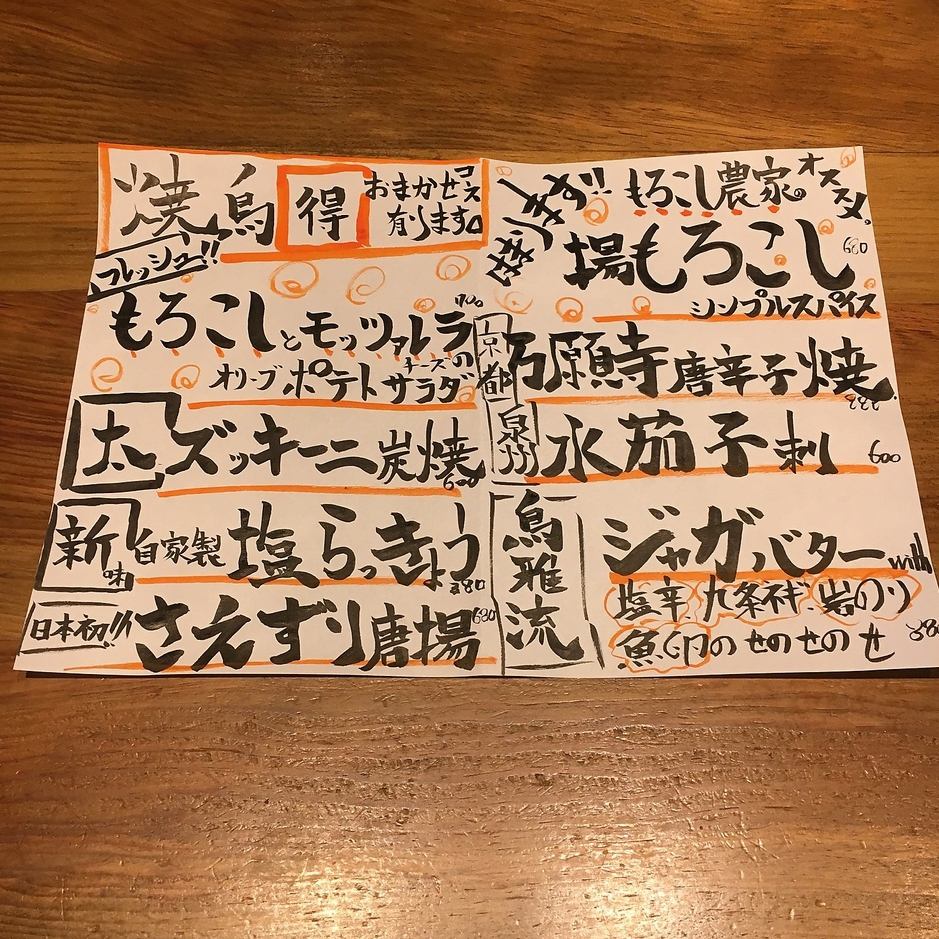 焼鳥 得 おまかせコース有ります。
フレッシュ!!
もろこしとモッツァレラチーズの 700
オリーブポテトサラダ
太 ズッキーニ炭焼 600
新味 自家製 塩らっきょう 380
日本初!! さえずり唐揚 680
もろこし農家のオススメ。
揚もろこし 680
シンプルスパイス
京都 万願寺唐辛子焼
泉州 水茄子刺 600
鳥雅流 ジャガバター with
塩辛、九条ネギ、岩のり
魚卵の せのせのせ